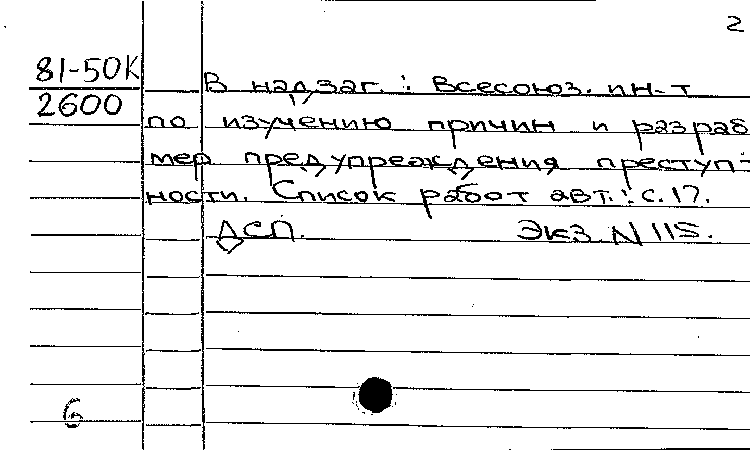 2
81-50К
В надзаг.: Всесоюз. ин-т
2600
по изучению причин и разраб
мер предупреждения преступ-
ности. Список работ авт.: с. 17.
ДСП. Экз. N 115.
6